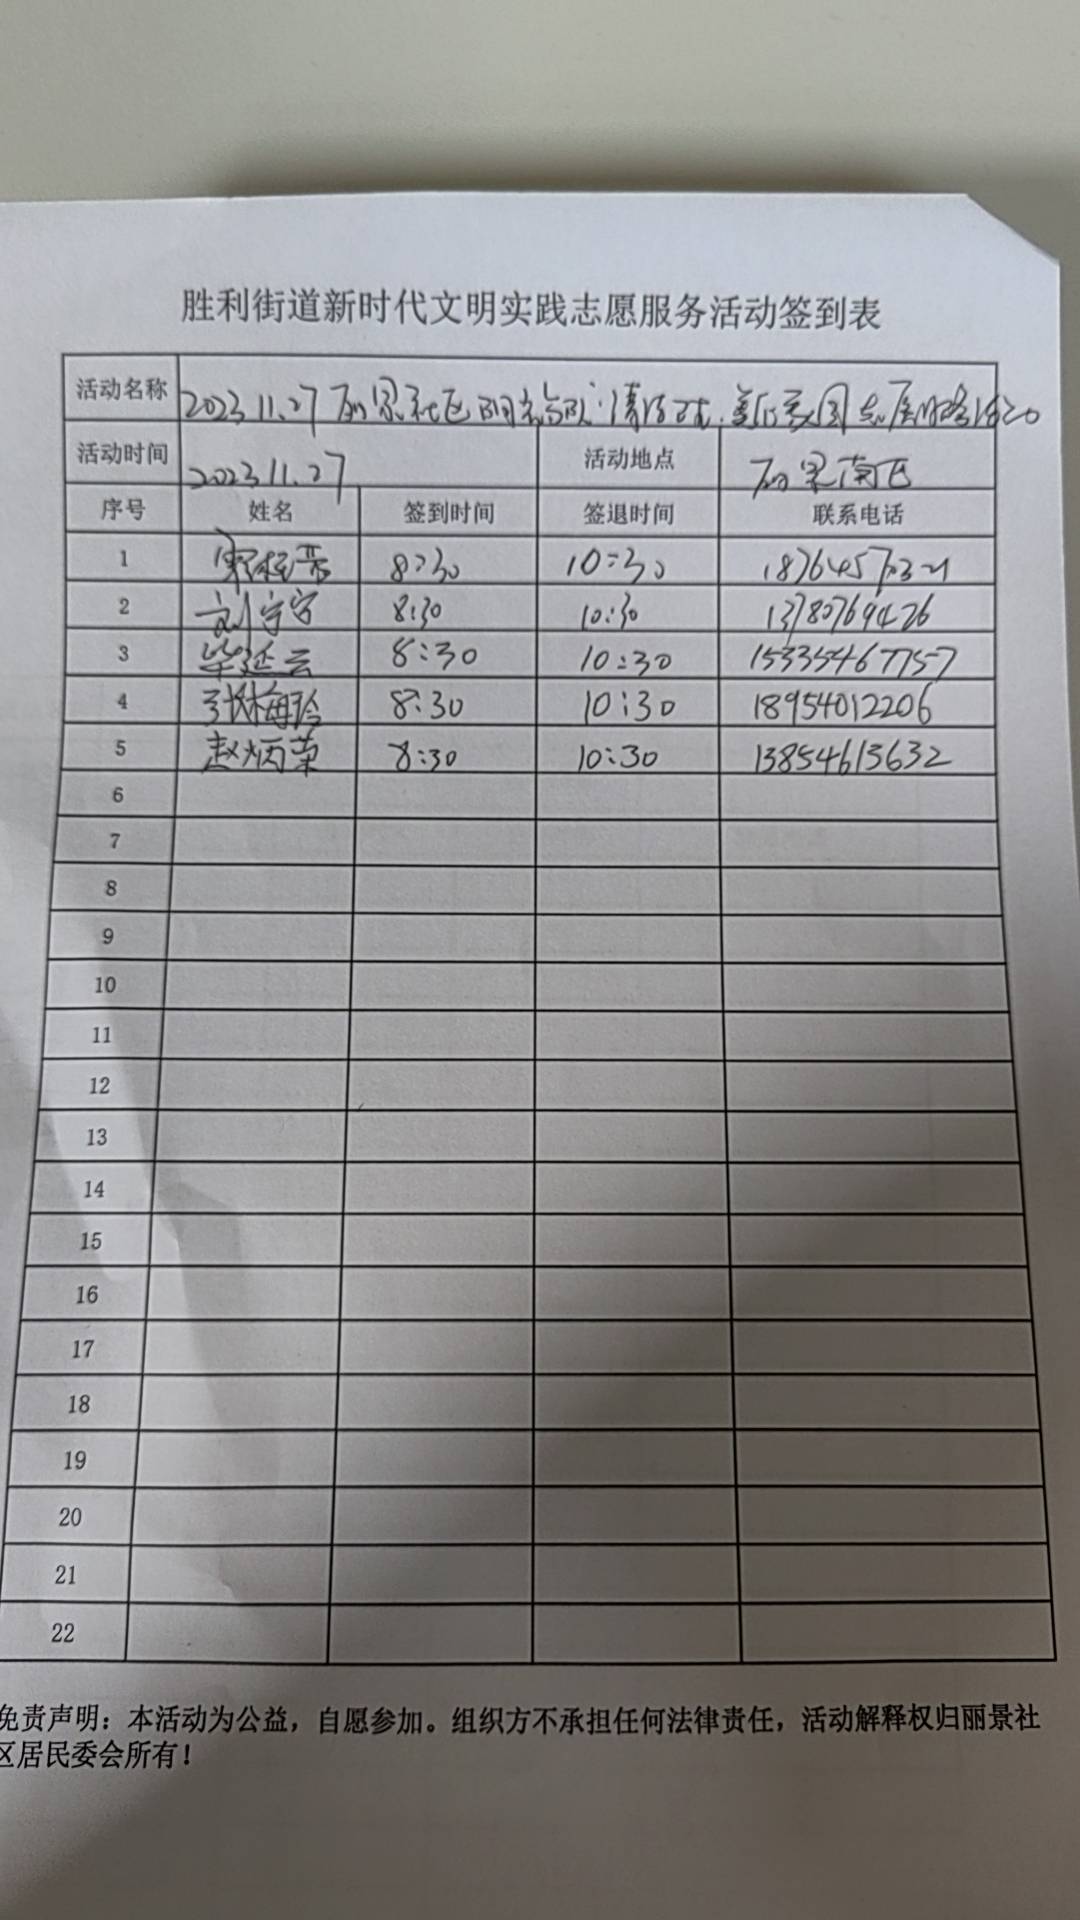 胜利街道新时代文明实践志愿服务活动签到表
活动名称 2023.11.27 丽景社区 志愿服务活动
活动时间 2023.11.27 活动地点 丽景南区
序号 姓名 签到时间 签退时间 联系电话
1 8:30 10:30
2 刘宁宁 8:30 10:30 13780769426
3 毕延云 8:30 10:30 15335467757
4 张梅玲 8:30 10:30 18954012206
5 赵炳荣 8:30 10:30 13854613632
6
7
8
9
10
11
12
13
14
15
16
17
18
19
20
21
22
免责声明：本活动为公益，自愿参加。组织方不承担任何法律责任，活动解释权归丽景社
区居民委会所有！